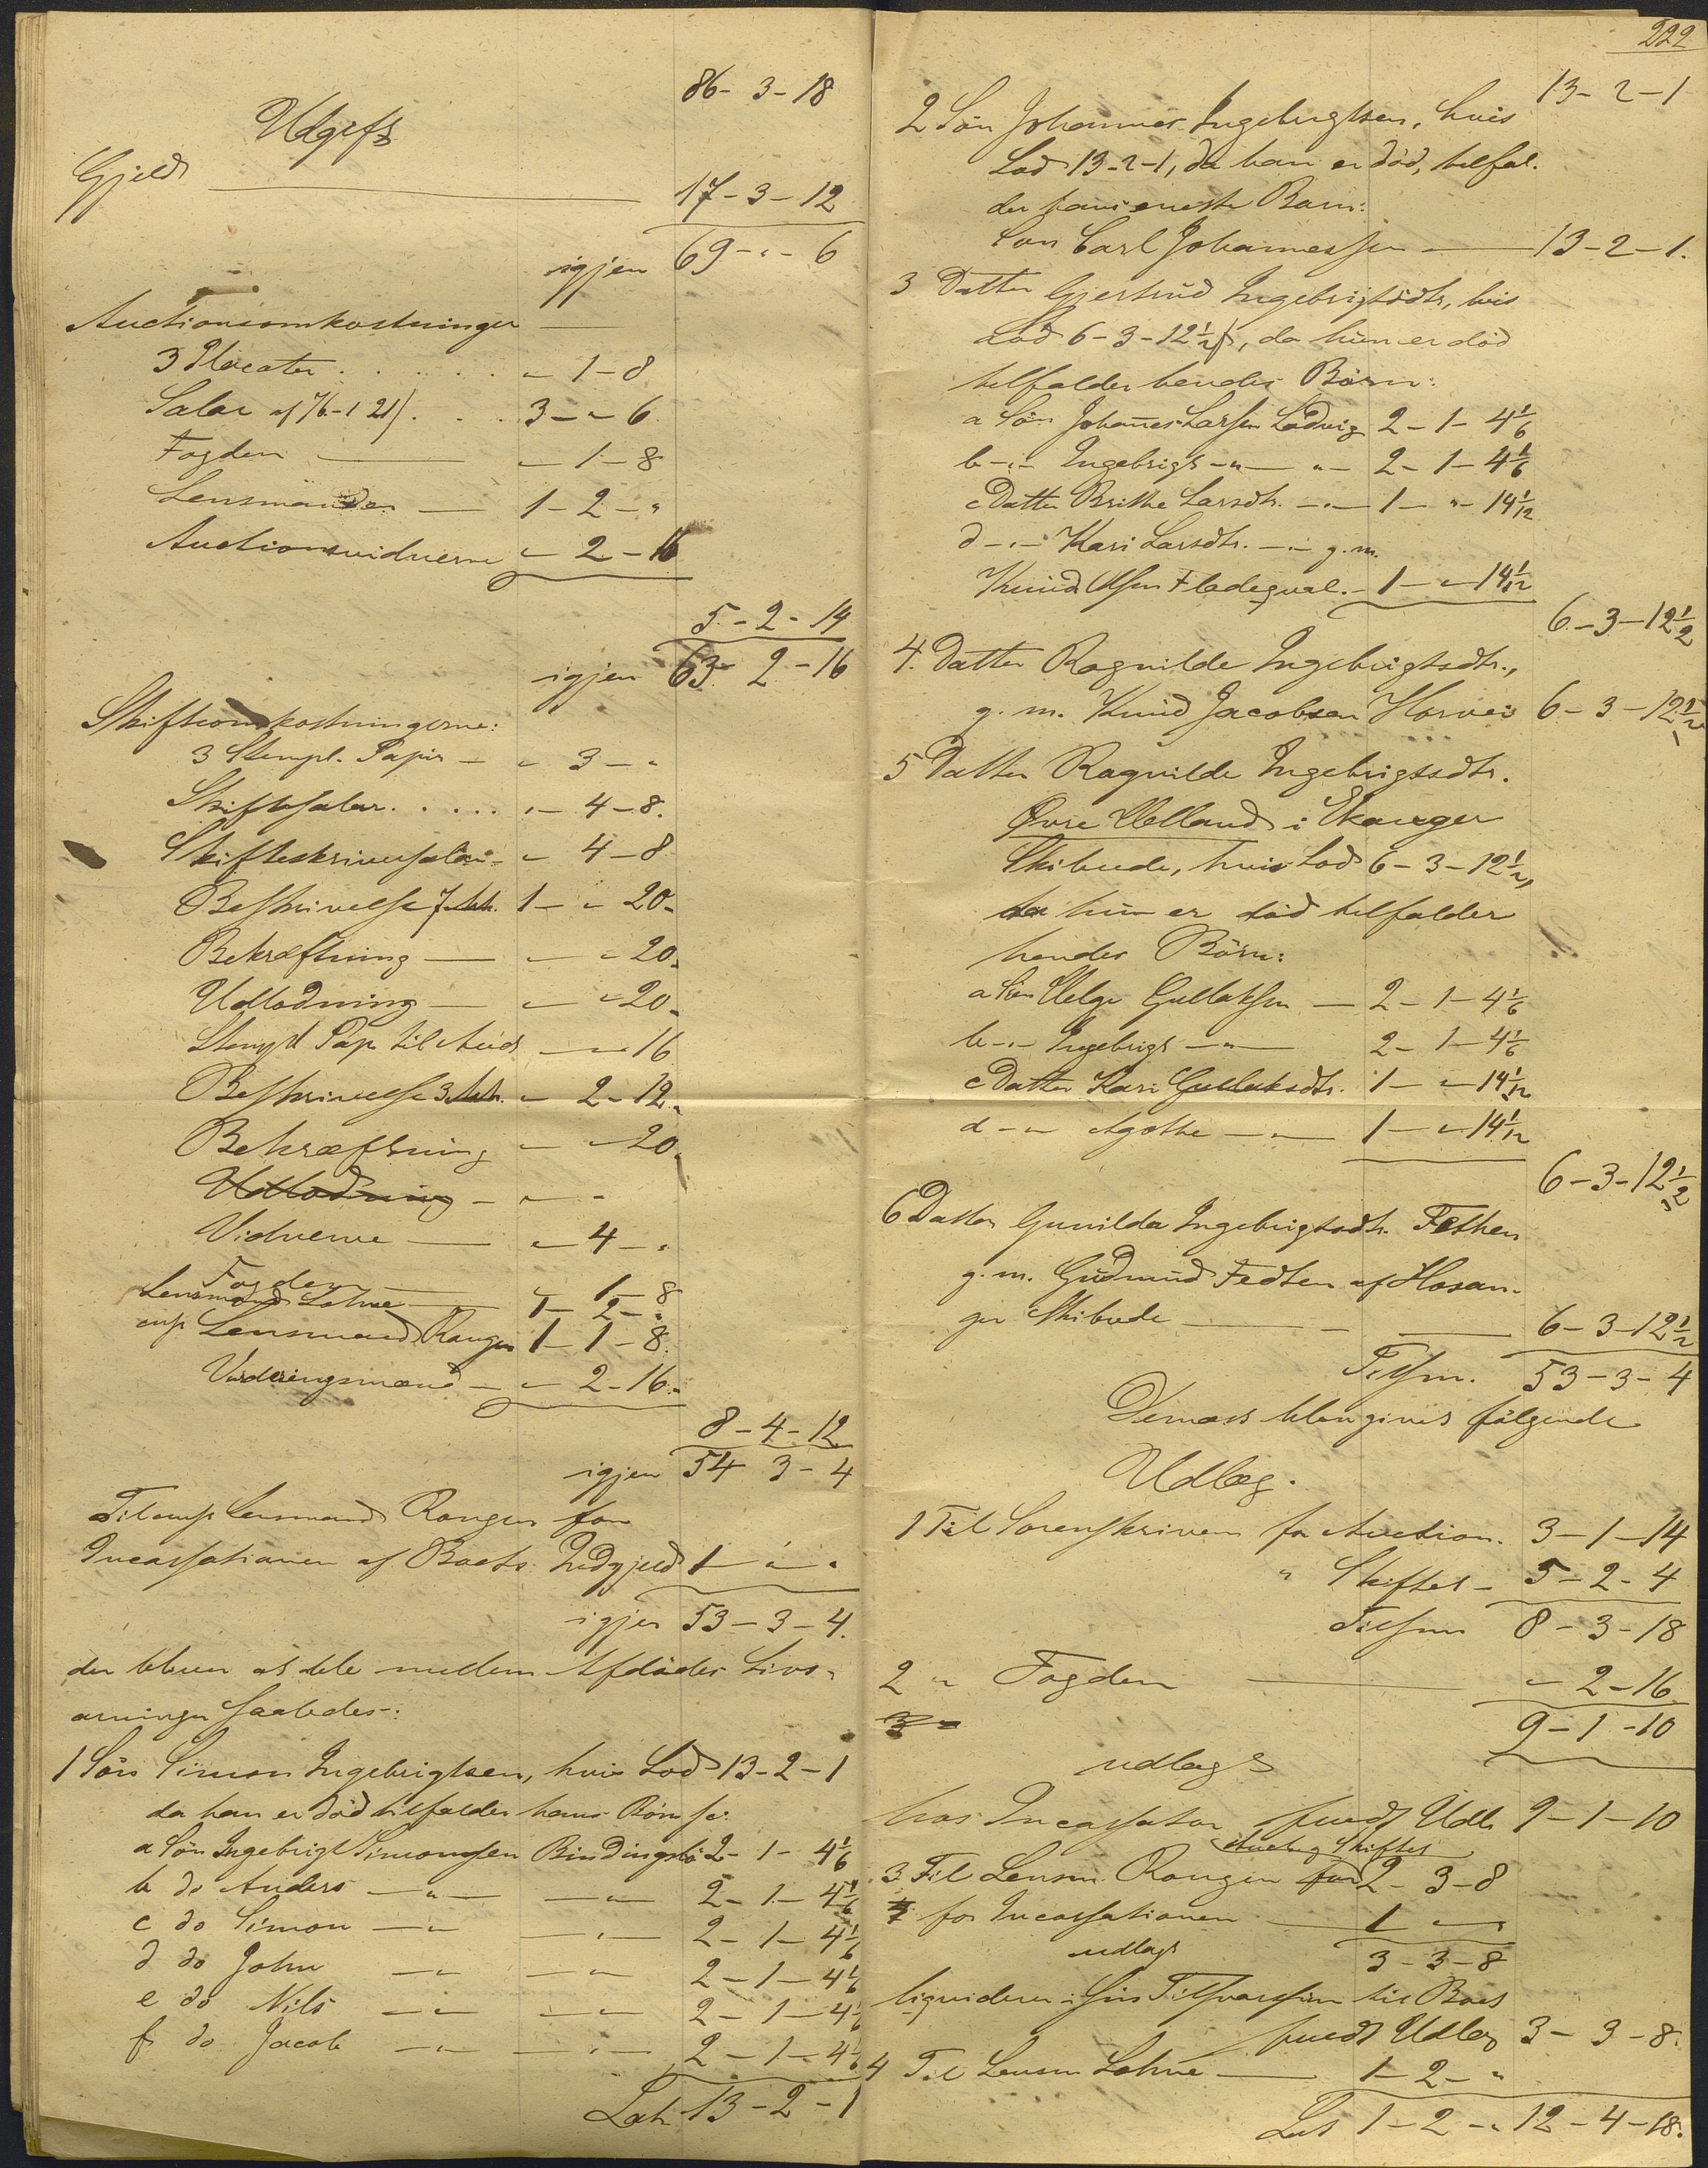 86- 3- 18
Udgift
Gjeld 17-3-12
igjen 69-"- 6
Auctionsomkostninger
3 Placater . . . . . " - 1-8
Salar af 76-1 21) . . . 3-"-6
Fogden "-1-8
Lensmanden 1-2-"
Auctionsvidnerne "-2-16
5-2-14
igjen 63- 2-16
Skifteomkostningerne:
3 Stempl. Papir - " 3-"
Skiftesalar . . . . . "-4-8.
Skifteskriversalar - " 4-8
Beskrivelse 7 Ark. 1-"-20-
Bekræftning "-"-20-
Udlodning "-"-20-
Stempl Pap til Auct "-"-16
Beskrivelse 3 Ark. " 2-12-
Bekræftning "-"-20-
Udlodning - "-
Vidnerne "-4-"
Fogden "-1-8
Lensmand Lohne 1-2-"
const Lensmand Ranger 1-1-8.
Vurderingsmænd - " 2-16-
8-4-12
igjen 54 3-4
Til const Lensmand Ranger for
Incassationen af Boets Indgjeld 1 " "
igjen 53-3-4.
der bliver at dele mellem Afdødes Livs-
arvinger saaledes:
1 Søn Simon Ingebrigtsen, hvis Lod 13-2-1
da han er død tilfalder hans Børn
a Søn Ingebrigt Simonsen Bindingsbø 2- 1- 4 1/6
b do Anders -"- -"- 2-1-4 1/6
c do Simon -"- -"- 2-1-4 1/6
d do John -"- -"- 2-1-4 1/6
e do Nils -"- -"- 2-1-4 1/6
f do Jacob -"- -"- 2-1-4 1/6
Lat. 13-2-1
222
13-2-1
2 Søn Johannes Ingebrigtsen, hvis
Lod 13-2-1, da han er død, tilfal-
der hans eneste Barn:
Søn Carl Johannessen 13-2-1.
3 Datter Gjertrud Ingebrigtsdtr, hvis
Lod 6-3-12 1/2, da hun er död
tilfalder hendes Börn:
a Søn Johannes Larsen Lødvig 2-1-4 1/6
b -"- Ingebrigt -"- "- 2-1-4 1/6
c Datter Brithe Larsdtr. -"- 1-"-14 1/12
d -"- Kari Larsdtr. -"- g. m.
Knud Olsen Fladeqval. - 1-"-14 1/12
6-3-12 1/2
4. Datter Ragnilde Ingebrigtsdtr.,
g. m. Knud Jacobsen Horvei 6-3-12 1/2
5 Datter Ragnilde Ingebrigtsdtr.
Øvre Helland i Ekanger
Skibrede, hvis Lod 6-3-12 1/2,
da hun er död tilfalder
hendes Börn:
a Søn Helge Gullaksen - 2-1-4 1/6
b -"- Ingebrigt -"- 2-1-4 1/6
c Datter Kari Gullaksdtr. 1-"-14 1/12
d -"- Agathe -"- 1-"-14 1/12
6-3-12 1/2
6 Datter Gunilda Ingebrigtsdtr. Fethen
g. m. Gudmund Fedten af Hosan-
ger Skibrede 6-3-12 1/2
Tilsm. 53-3-4
Dernæst blev givet følgende
Udlæg.
1 Til Sorenskriveren for Auction. 3-1-14
" Skiftet - 5-2-4
Tilsm 8-3-18
2 " Fogden "-2-16
3 " 9-1-10
udlagt
hos Incassator fuldt Udl. 9-1-10
Auct og Skiftet
3 Til Lensm. Ranger for 2-3-8
4 for Incassationen 1 " "
udlagt 3-3-8
liquiderer i sin Tilsvarssum til Boet
fuldt Udlæg 3-3-8.
4 Til Lensm Lohne 1-2-"
Lat 1-2-" 12-4-18.